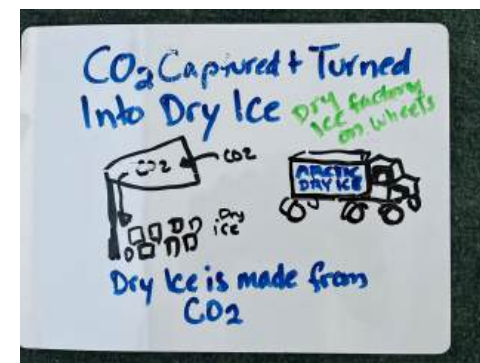 CO2 Captured + Turned
Into Dry Ice
Dry factory
ice on wheels
CO2
CO2
Dry
ice
ARCTIC
DRY ICE
Dry Ice is made from
CO2